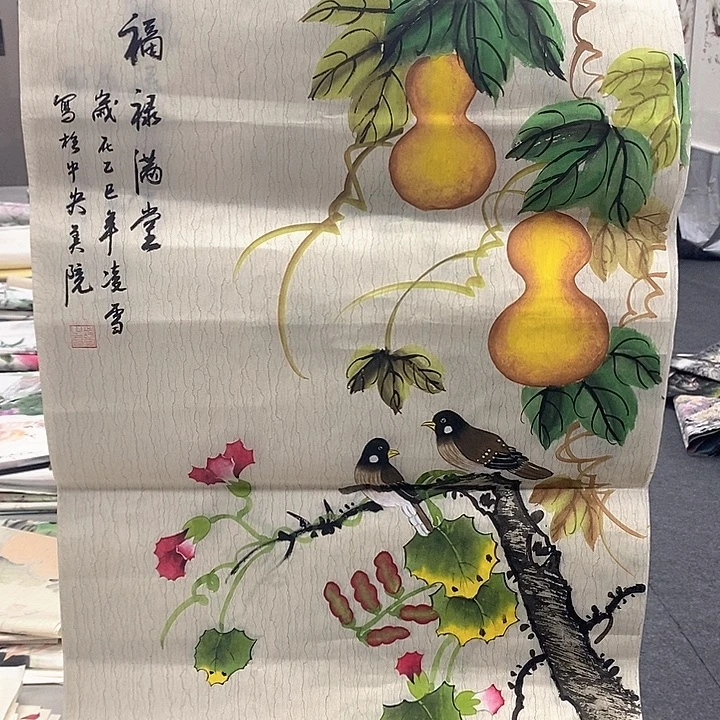 福禄满堂
歲在乙巳年凌雪
寫於中央美院